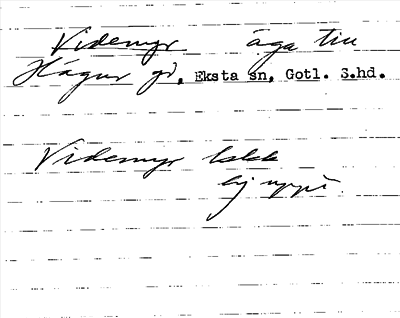 Videmyr äga till
Hägur gd, Eksta sn, Gotl. S.hd.
Videmyr
ej uppt.